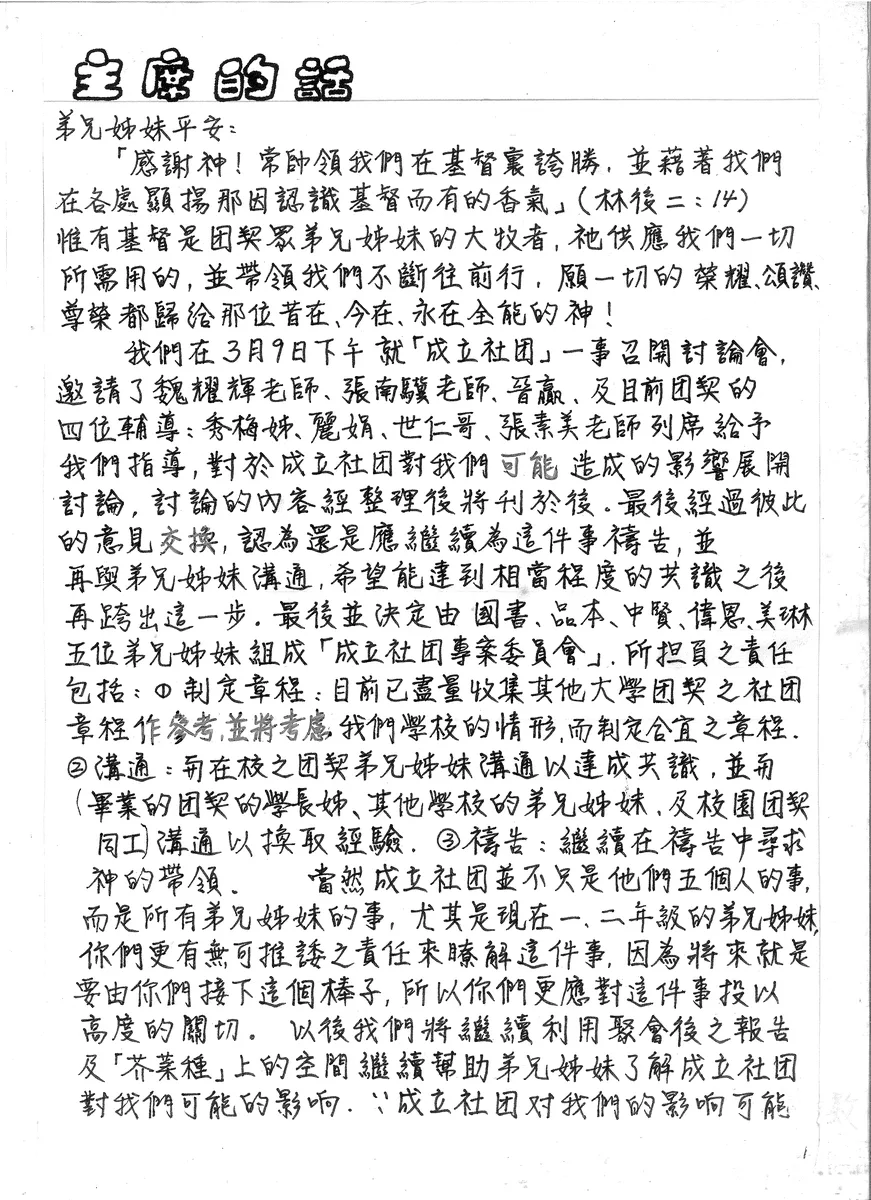 主席的話
弟兄姊妹平安：
「感謝神！常帥領我們在基督裏誇勝，並藉著我們
在各處顯揚那因認識基督而有的香氣」(林後二：14)
惟有基督是团契眾弟兄姊妹的大牧者，祂供應我們一切
所需用的，並帶領我們不斷往前行．願一切的榮耀、頌讚、
尊榮都歸給那位昔在、今在、永在全能的神！
我們在3月9日下午就「成立社团」一事召開討論會，
邀請了魏耀輝老師、張南驥老師、晉贏、及目前团契的
四位輔導：秀梅姊、麗娟、世仁哥、張素美老師列席給予
我們指導，對於成立社团對我們可能造成的影響展開
討論，討論的內容經整理後將刊於後。最後經過彼此
的意見交換，認為還是應繼續為這件事禱告，並
再與弟兄姊妹溝通，希望能達到相當程度的共識之後
再跨出這一步．最後並決定由國書、品本、中賢、偉恩、美琳
五位弟兄姊妹組成「成立社团專案委員會」．所担負之責任
包括：①制定章程：目前已盡量收集其他大學团契之社团
章程作參考，並將考慮我們學校的情形，而制定合宜之章程．
②溝通：和在校之团契弟兄姊妹溝通以達成共識，並和
(畢業的团契的學長姊、其他學校的弟兄姊妹、及校園团契
同工)溝通以換取經驗．③禱告：繼續在禱告中尋求
神的帶領． 當然成立社团並不只是他們五個人的事，
而是所有弟兄姊妹的事，尤其是現在一、二年級的弟兄姊妹，
你們更有無可推諉之責任來瞭解這件事，因為將來就是
要由你們接下這個棒子，所以你們更應對這件事投以
高度的關切。 以後我們將繼續利用聚會後之報告
及「芥菜種」上的空間繼續幫助弟兄姊妹了解成立社团
對我們可能的影响．∵成立社团对我們的影响可能
1